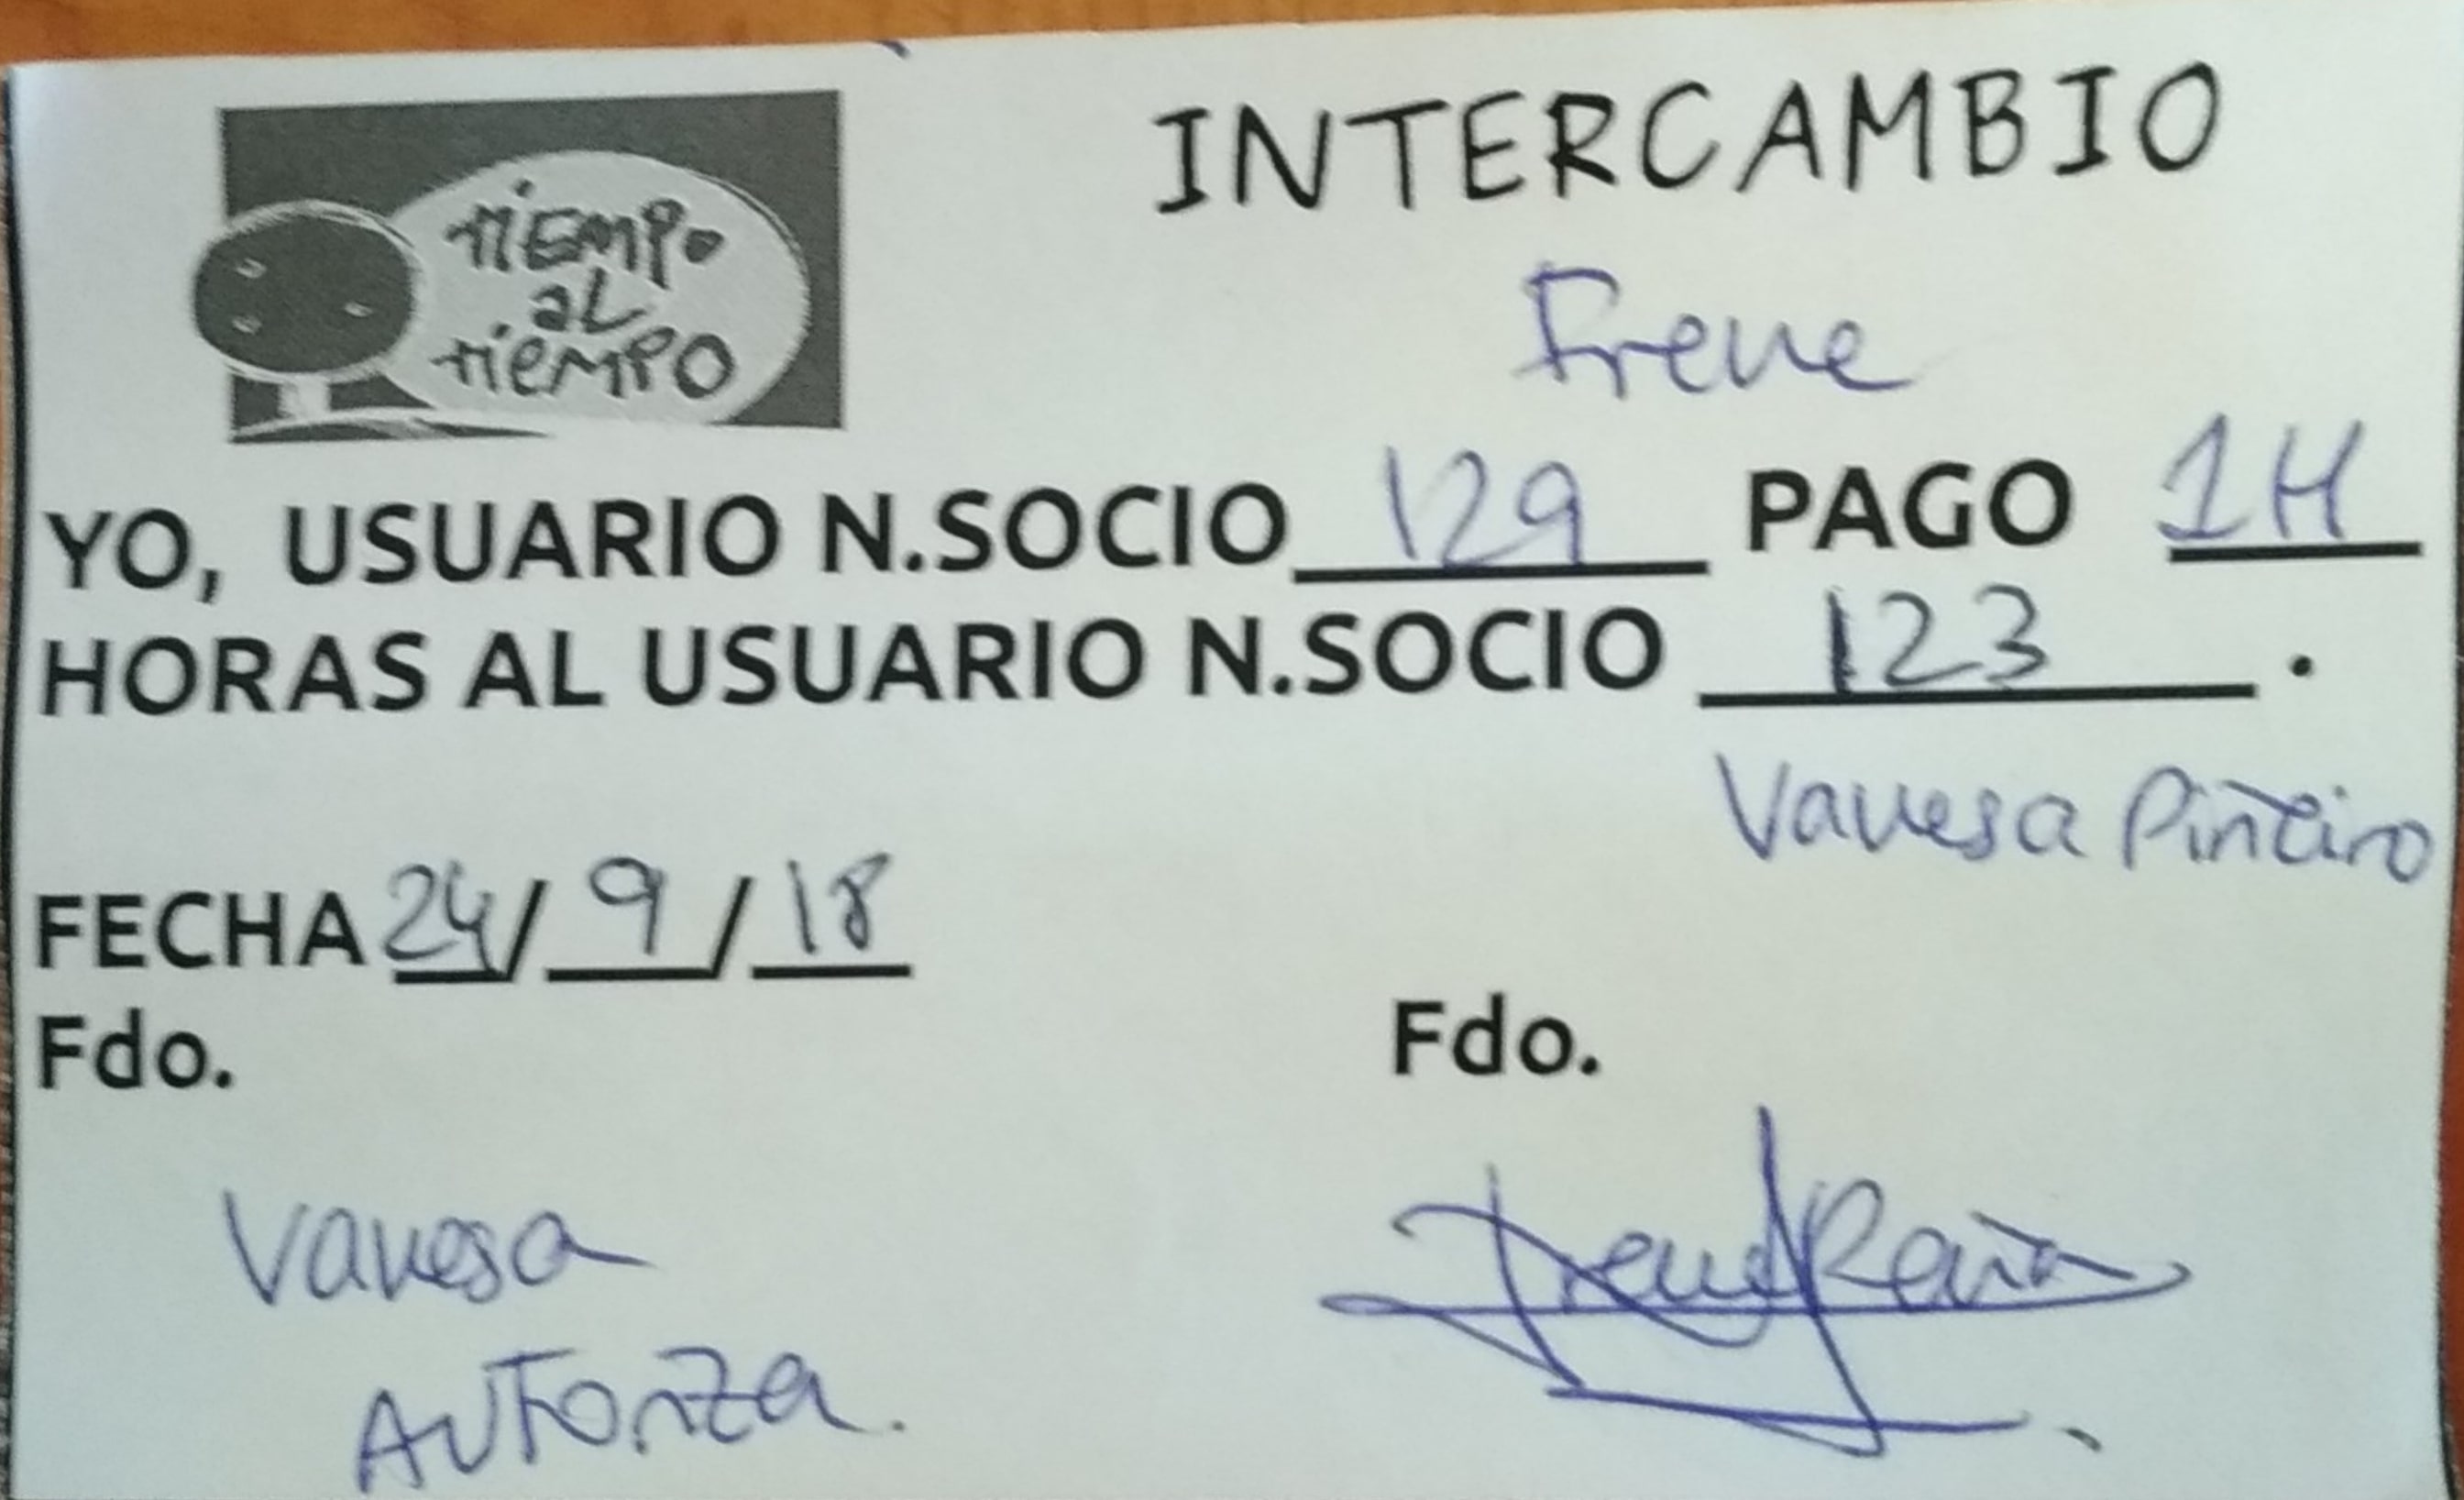 TIEMPO
AL
TIEMPO
INTERCAMBIO
Irene
YO, USUARIO N.SOCIO 129 PAGO 1H
HORAS AL USUARIO N.SOCIO 123 .
Vanesa Piñeiro
FECHA 24/ 9 / 18
Fdo. Fdo.
Vanesa
AUTORIZA.
Irene